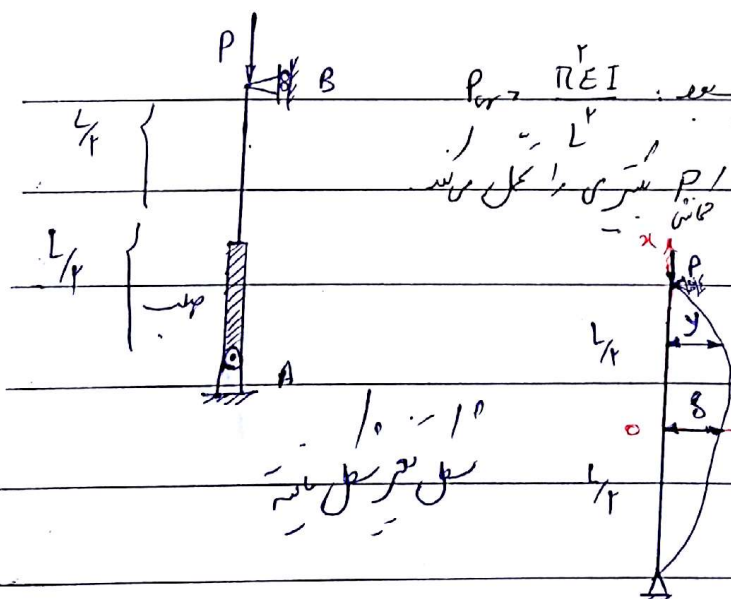 P
B
L/۲
L/۲
صلب
A
Pcr > π۲EI / L۲
P بیشتری را تحمل می‌کند
x
P
y
L/۲
o
δ
L/۲
شکل تغییر شکل یافته